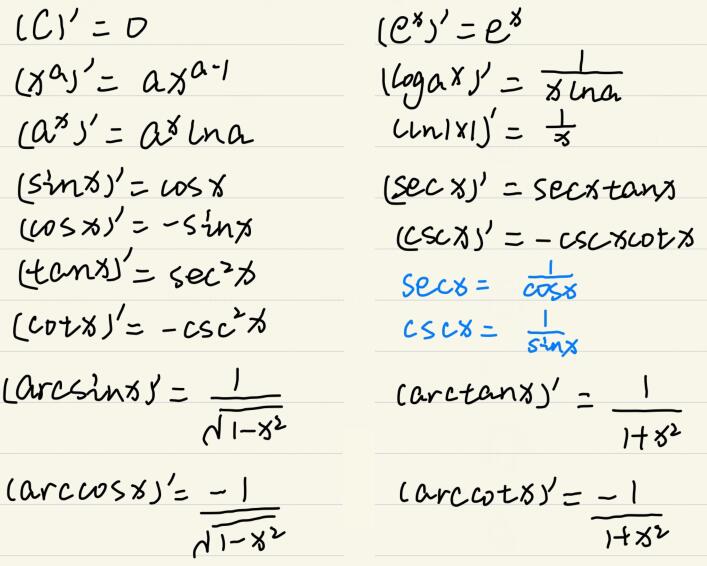 (C)' = 0
(x^a)' = ax^{a-1}
(a^x)' = a^x lna
(sinx)' = cosx
(cosx)' = -sinx
(tanx)' = sec²x
(cotx)' = -csc²x
(arcsinx)' = 1/√(1-x²)
(arccosx)' = -1/√(1-x²)
(e^x)' = e^x
(log_a x)' = 1/(x lna)
(ln|x|)' = 1/x
(secx)' = secxtanx
(cscx)' = -cscxcotx
secx = 1/cosx
cscx = 1/sinx
(arctanx)' = 1/(1+x²)
(arccotx)' = -1/(1+x²)